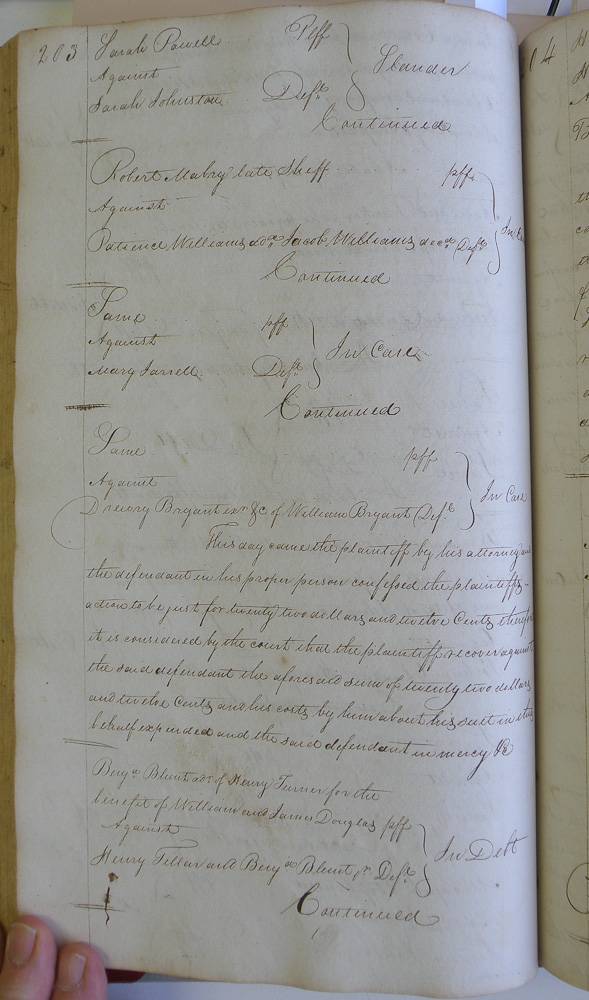 203
Sarah Powell Plff
Against Slander
Sarah Johnston Deft.
Continued
Robert Mabry late Sheff plff.
Against In Ca
Patience Williams adx. Jacob Williams decd. Deft.
Continued
Same plff
Against In Case
Mary Jarrell Deft.
Continued
Same plff
Against In Case
Drewry Bryant exr. &c of William Bryant Deft.
This day came the plaintiff by his attorney and
the defendant in his proper person confessed the plaintiffs
action to be just for twenty two dollars and twelve Cents therefore
it is considered by the court that the plaintiff recover against
the said defendant the aforesaid sum of twenty two dollars
and twelve Cents and his costs by him about his suit in this
behalf expended and the said defendant in mercy &c
Benja. Blunt adr. of Henry Turner for the
benefit of William and James Douglas plff
Against In Debt
Henry and Benja. Blunt Deft.
Continued
04